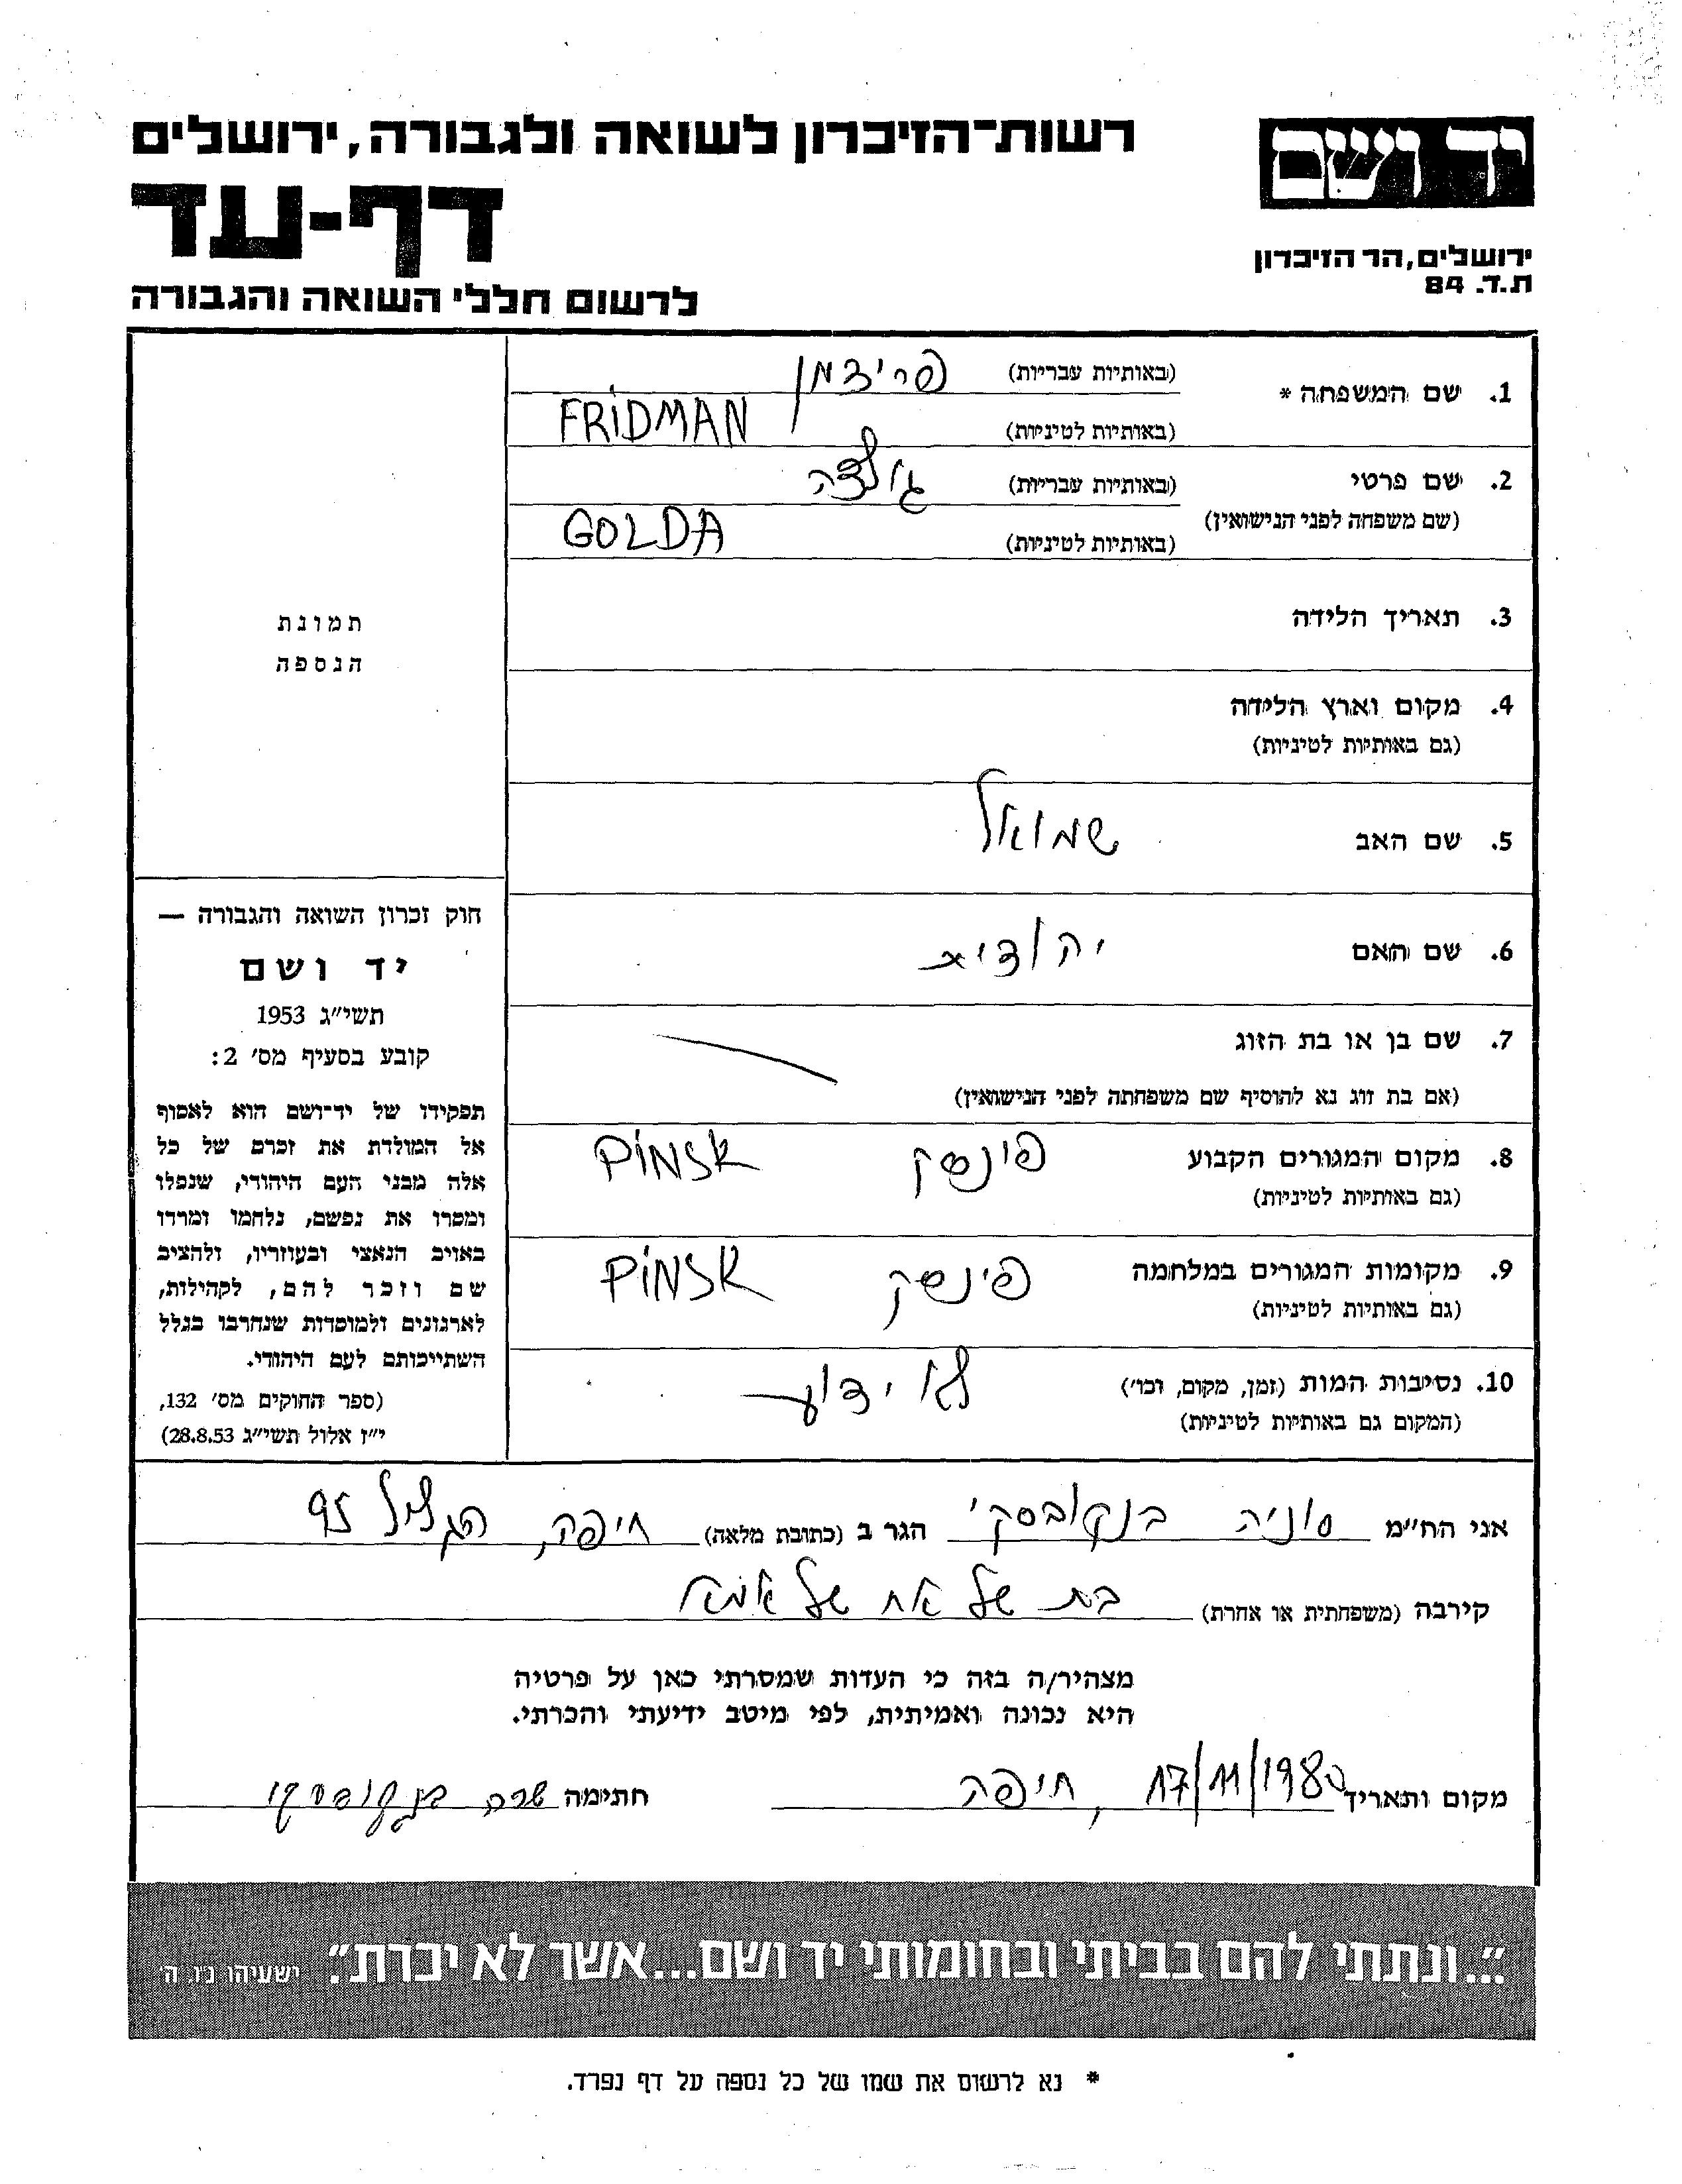 יד ושם
ירושלים, הר הזיכרון
ת.ד. 84
רשות־הזיכרון לשואה ולגבורה, ירושלים
דף-עד
לרשום חללי השואה והגבורה
1. שם המשפחה * (באותיות עבריות) פרידמן
(באותיות לטיניות) FRIDMAN
2. שם פרטי (באותיות עבריות) גולדה
(שם משפחה לפני הנישואין) (באותיות לטיניות) GOLDA
3. תאריך הלידה
4. מקום וארץ הלידה
(גם באותיות לטיניות)
5. שם האב שמואל
6. שם האם יהודית
7. שם בן או בת הזוג
(אם בת זוג נא להוסיף שם משפחתה לפני הנישואין)
8. מקום המגורים הקבוע פינסק PINSK
(גם באותיות לטיניות)
9. מקומות המגורים במלחמה פינסק PINSK
(גם באותיות לטיניות)
10. נסיבות המות (זמן, מקום, וכו') לא ידוע
(המקום גם באותיות לטיניות)
תמונת
הנספה
חוק זכרון השואה והגבורה —
יד ושם
תשי"ג 1953
קובע בסעיף מס' 2:
תפקידו של יד־ושם הוא לאסוף
אל המולדת את זכרם של כל
אלה מבני העם היהודי, שנפלו
ומסרו את נפשם, נלחמו ומרדו
באויב הנאצי ובעוזריו, ולהציב
שם וזכר להם, לקהילות,
לארגונים ולמוסדות שנחרבו בגלל
השתייכותם לעם היהודי.
(ספר החוקים מס' 132,
י"ז אלול תשי"ג 28.8.53)
אני הח"מ סוניה בנקובסקי הגר ב (כתובת מלאה) חיפה, הגליל 95
קירבה (משפחתית או אחרת) בת של אח של אמא
מצהיר/ה בזה כי העדות שמסרתי כאן על פרטיה
היא נכונה ואמיתית, לפי מיטב ידיעתי והכרתי.
מקום ותאריך 17/11/1980, חיפה חתימה שרה בנקובסקי
"...ונתתי להם בביתי ובחומותי יד ושם...אשר לא יכרת". ישעיהו נ"ו, ה'
* נא לרשום את שמו של כל נספה על דף נפרד.